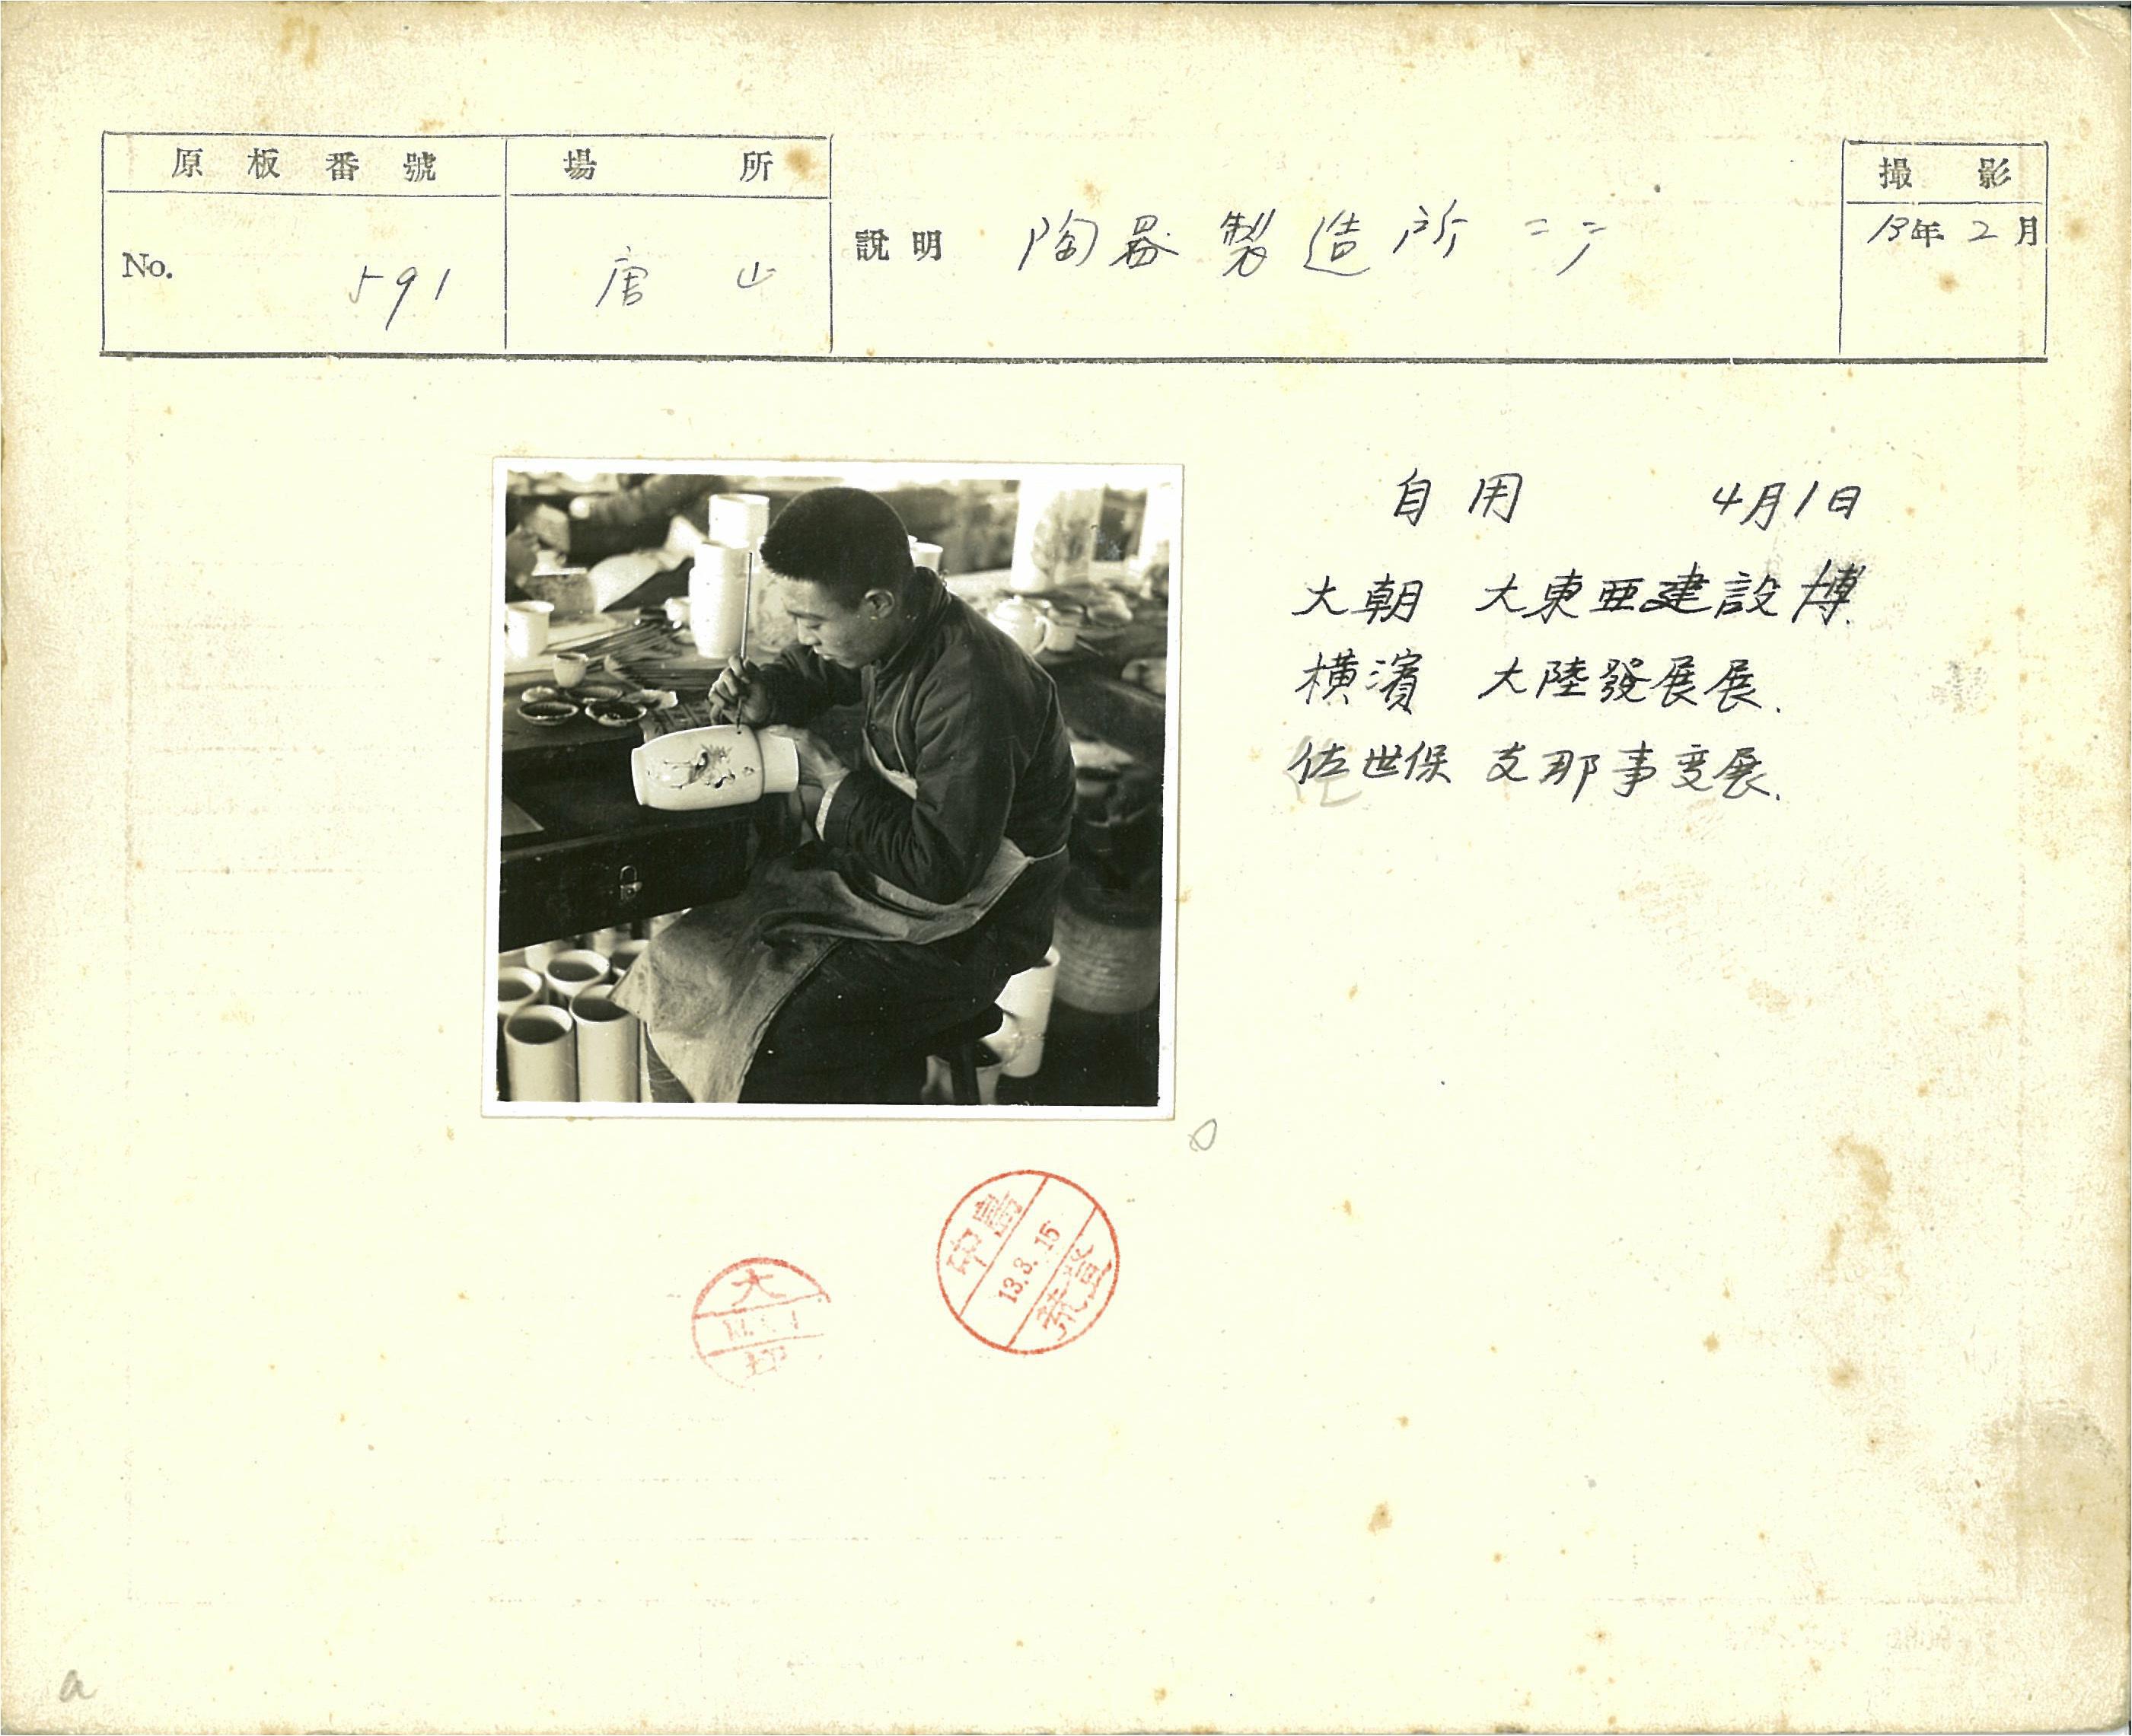 原板番號
場所
撮影
No. 591
唐山
說明 陶器製造所ニテ
13年2月
自用 4月1日
大朝 大東亜建設博.
横濱 大陸發展展.
佐世保 支那事変展.
13.3.15
大
a